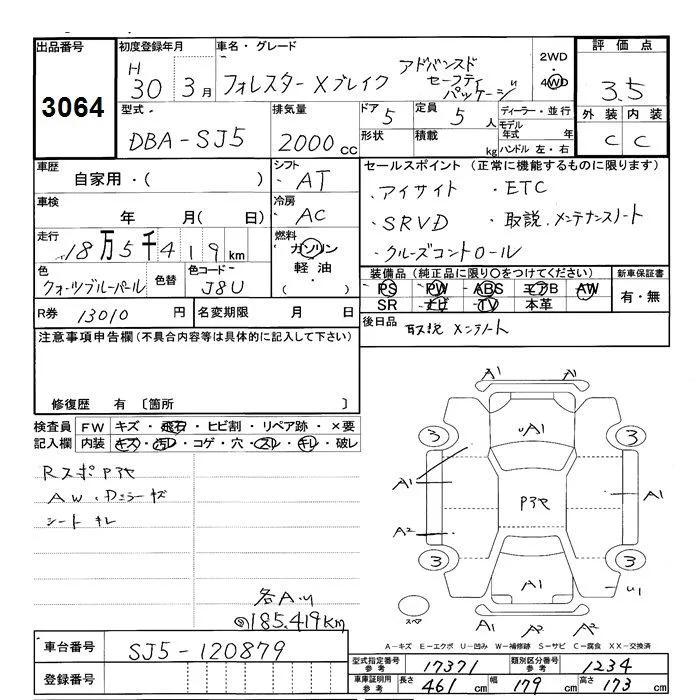 出品番号
3064
初度登録年月
H 30 3月
車名・グレード
フォレスター Xブレイク アドバンスド
セーフティ
パッケージ
2WD
・
4WD
評価点
3.5
外装 内装
C C
型式・
DBA-SJ5
排気量
2000 cc
ドア 5
形状
定員 5 人
積載 kg
ディーラー・並行
モデル年式 年
ハンドル 左・右
車歴
自家用・( )
シフト
AT
車検
年 月( 日)
冷房
AC
走行
18万5千419 km
燃料
ガソリン
軽油・
( )
色
クォーツブルーパール
色替
色コード・
J8U
R券 13010 円
名変期限 月 日
セールスポイント (正常に機能するものに限ります)
・アイサイト ・ETC
・SRVD ・取説、メンテナンスノート
・クルーズコントロール
装備品 (純正品に限り〇をつけてください)
PS PW ABS エアB AW
SR ナビ TV 本革
新車保証書
有・無
後日品 取説 メンテノート
注意事項申告欄 (不具合内容等は具体的に記入して下さい)
修復歴 有 〔箇所 〕
検査員
記入欄
FW キズ・飛石・ヒビ割・リペア跡・×要
内装 キズ・汚レ・コゲ・穴・スレ・キレ・破レ
Rスポ Pアセ
AW・Dミラーキズ
シート キレ
各Aリ
185,419KM
A1
A1
UA1
3
3
A1
A1
Pアセ
A2
3
3
A1
U1
スペア
A2
A2
A-キズ E-エクボ U-凹み W-補修跡 S-サビ C-腐食 XX-交換済
車台番号
SJ5-120879
登録番号
型式指定番号
参考
17371
類別区分番号
参考
1234
車庫証明用
参考
長さ 461 cm 幅 179 cm 高さ 173 cm